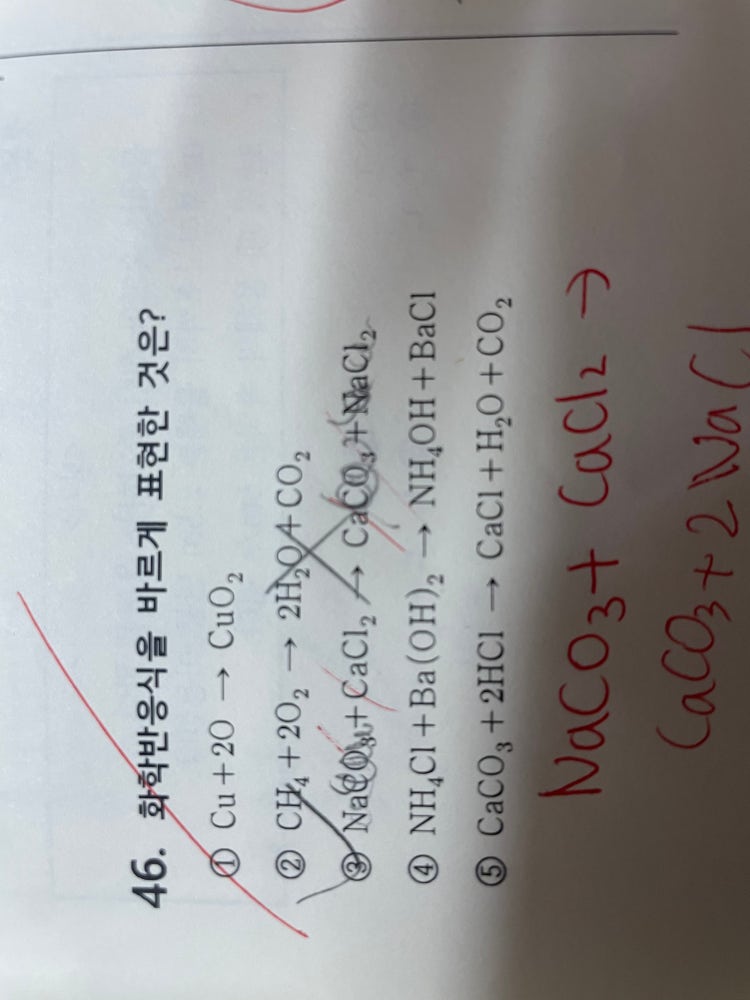 46. 화학반응식을 바르게 표현한 것은?
① Cu + 2O → CuO₂
② CH₄ + 2O₂ → 2H₂O + CO₂
③ NaCO₃ + CaCl₂ → CaCO₃ + NaCl₂
④ NH₄Cl + Ba(OH)₂ → NH₄OH + BaCl
⑤ CaCO₃ + 2HCl → CaCl + H₂O + CO₂
NaCO₃ + CaCl₂ →
CaCO₃ + 2NaCl